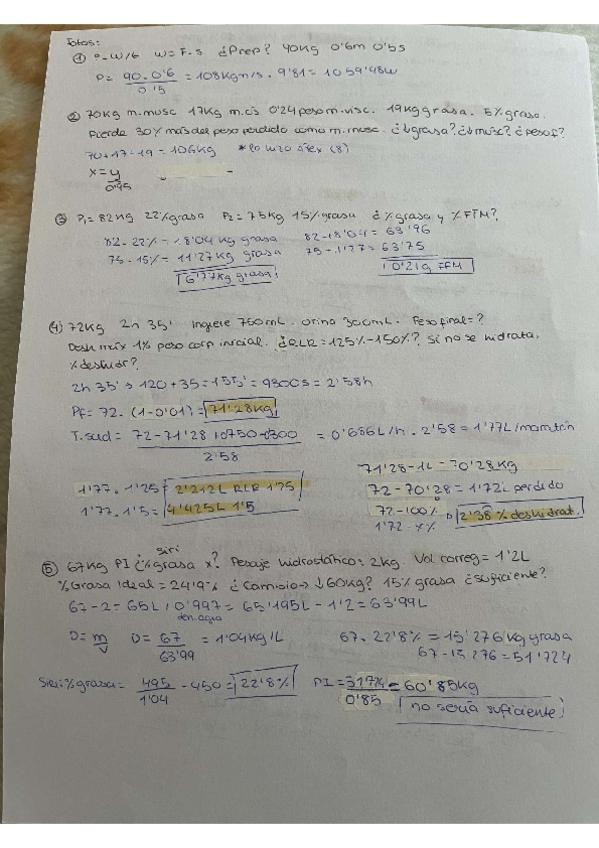 Fotos:
① P=W/t W=F·s ¿Prep? 90kg 0'6m 0'5s
P= 90·0'6 / 0'5 = 108kgm/s · 9'81 = 1059'48W
② 70kg m.musc 17kg m.óS 0'24 peso m.visc. 19kg grasa. 5% grasa.
Pierde 30% más del peso perdido como m.musc. ¿↓grasa? ¿↓musc? ¿pesof?
70+17-19 = 106kg *lo hizo (8)
x = y / 0'95
③ P₁=82kg 22% grasa P₂=75kg 15% grasa ¿% grasa y % FFM?
82·22% = 18'04 kg grasa 82-18'04 = 63'96
75·15% = 11'27 kg grasa 75-11'27 = 63'75
6'77kg grasa 0'21g FFM
④ 72kg 2h 35' Ingiere 750mL. orina 300mL. Peso final=?
Desh máx 1% peso corp inicial. ¿RLR = 125%-150%? Si no se hidrata,
% deshidr?
2h 35' → 120+35 = 155' = 9300s = 2'58h
Pf = 72·(1-0'01) = 71'28kg
T.sud = 72-71'28+0'750-0'300 / 2'58 = 0'686L/h · 2'58 = 1'77L/maratón
71'28-1L = 70'28kg
1'77·1'25 = 2'212L RLR 1'25 72-70'28 = 1'72L perdido
1'77·1'5 = 4'425L 1'5 72-100%
1'72-x% 2'38% deshidrat.
siri
⑤ 67kg PI ¿% grasa x? Pesaje hidrostático: 2kg. Vol correg = 1'2L
% Grasa ideal = 24'9% ¿Cambio → ↓60kg? 15% grasa ¿suficiente?
67-2 = 65L / 0'997 = 65'195L - 1'2 = 63'99L
den.agua
D = m/v D = 67 / 63'99 = 1'04kg/L 67·22'8% = 15'276kg grasa
67-15'276 = 51'724
Siri: % grasa = 495 / 1'04 - 450 = 22'8% PI = 51'724 / 0'85 = 60'85kg
no sería suficiente